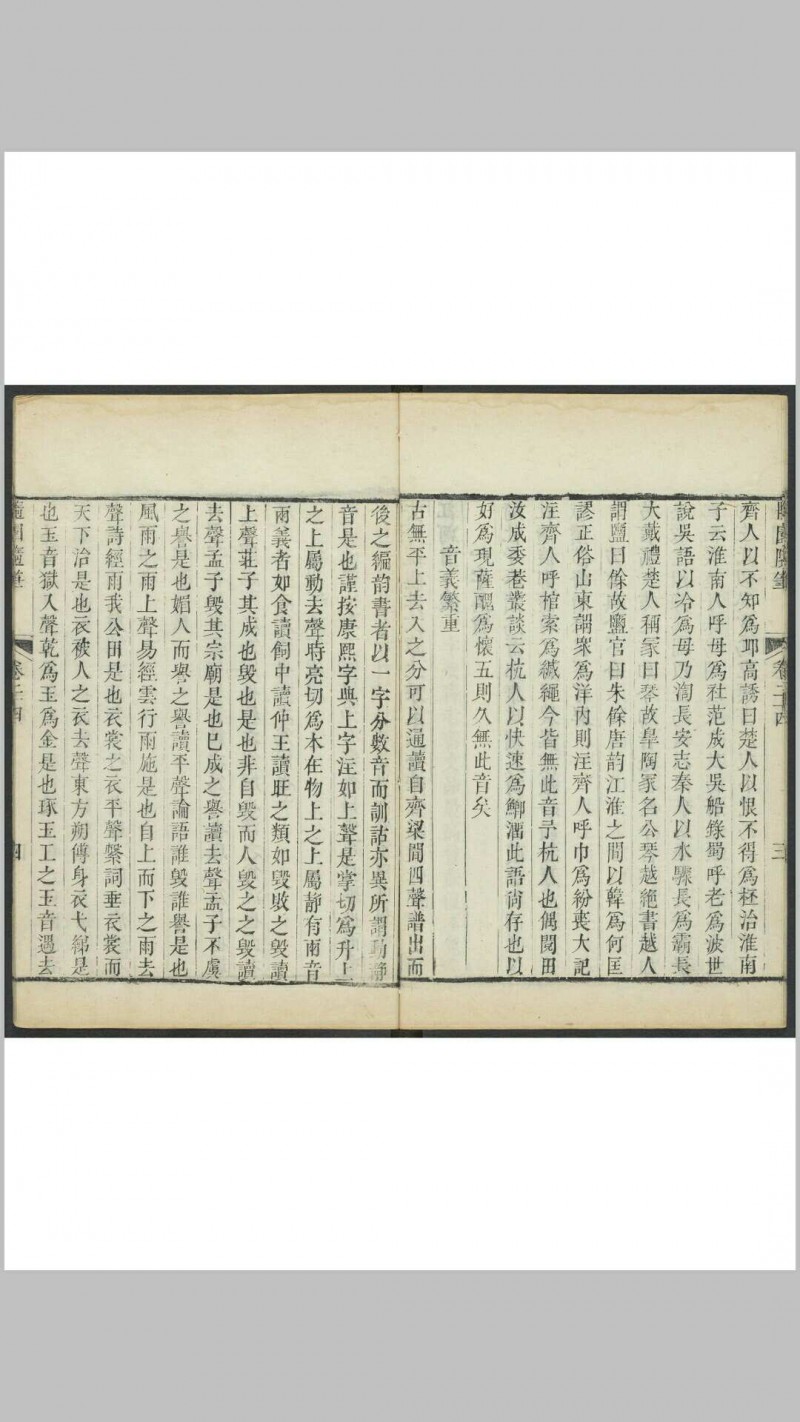 齊人以不知爲耶高誘曰楚人以恨不得爲極治淮南
子云淮南人呼母爲社范成大吳船錄蜀呼老爲波世
說吳語以冷爲母乃渹長安志秦人以水驟長爲霸長
大戴禮楚人稱冢曰琴故臯陶冢名公琴越絶書越人
謂鹽曰餘故鹽官曰朱餘唐韵江淮之間以韓爲何匡
謬正俗山東謂衆爲洋內則注齊人呼巾爲紛喪大記
注齊人呼棺索爲緘繩今皆無此音予杭人也偶閱田
汝成委巷叢談云杭人以快速爲鯽溜此語尙存也以
好爲現薩醜爲懷五則久無此音矣
音義繁重
古無平上去入之分可以通讀自齊梁間四聲譜出而
後之編韵書者以一字分數音而訓詁亦異所謂動靜
音是也謹按康熙字典上字注如上聲是掌切爲升上
之上屬動去聲時亮切爲本在物上之上屬靜有兩音
兩義者如食讀飼中讀仲王讀旺之類如毁敗之毁讀
上聲莊子其成也毁也是也非自毁而人毁之之毁讀
去聲孟子毁其宗廟是也已成之譽讀去聲孟子不虞
之譽是也媚人而譽之譽讀平聲論語誰毁誰譽是也
風雨之雨上聲易經雲行雨施是也自上而下之雨去
聲詩經雨我公田是也衣裳之衣平聲繫詞垂衣裳而
天下治是也衣被人之衣去聲東方朔傳身衣弋綈是
也玉音獄入聲乾爲玉爲金是也琢玉工之玉音遇去
卷二十四
三
卷二十四
四